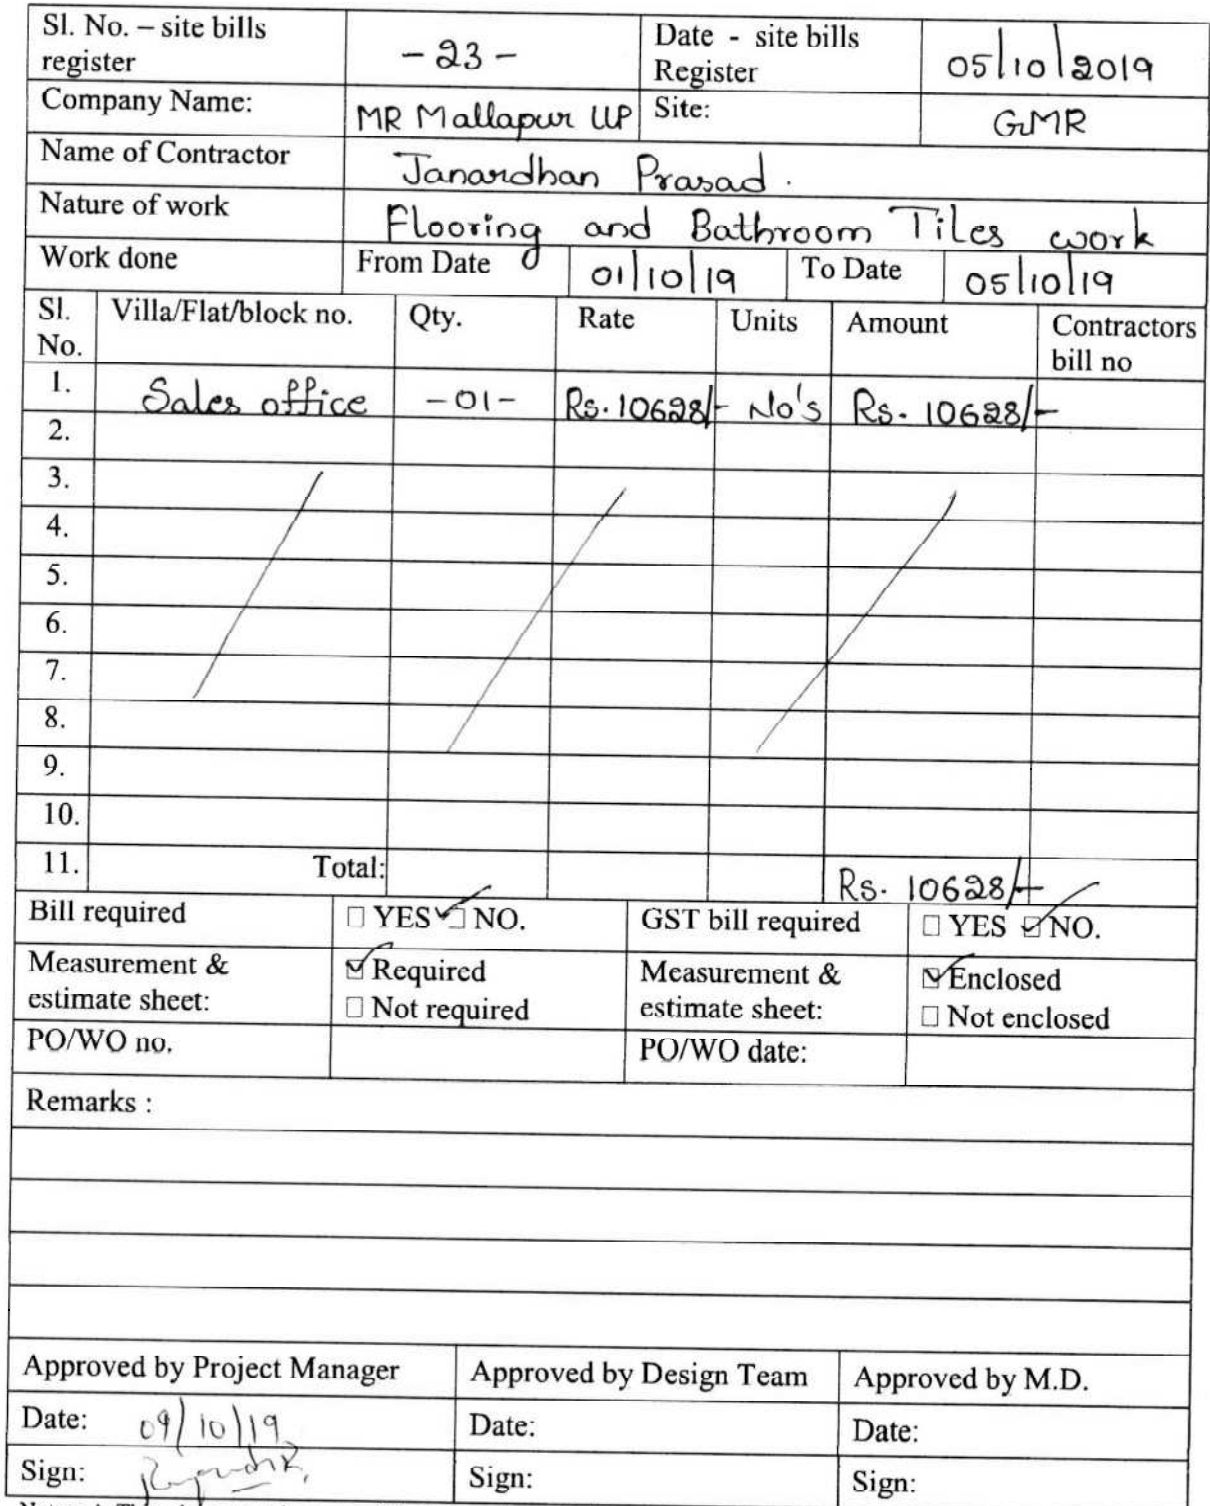 Sl. No. – site bills register - 23 - Date - site bills Register 05/10/2019
Company Name: MR Mallapur LLP Site: GMR
Name of Contractor Janardhan Prasad.
Nature of work Flooring and Bathroom Tiles work
Work done From Date 01/10/19 To Date 05/10/19
Sl. No. Villa/Flat/block no. Qty. Rate Units Amount Contractors bill no
1. Sales office -01- Rs. 10628/- No's Rs. 10628/-
2.
3.
4.
5.
6.
7.
8.
9.
10.
11. Total: Rs. 10628/-
Bill required □ YES ☑ NO. GST bill required □ YES ☑ NO.
Measurement & estimate sheet: ☑ Required Measurement & estimate sheet: ☑ Enclosed
□ Not required □ Not enclosed
PO/WO no. PO/WO date:
Remarks :
Approved by Project Manager Approved by Design Team Approved by M.D.
Date: 09/10/19 Date: Date:
Sign: Sign: Sign: